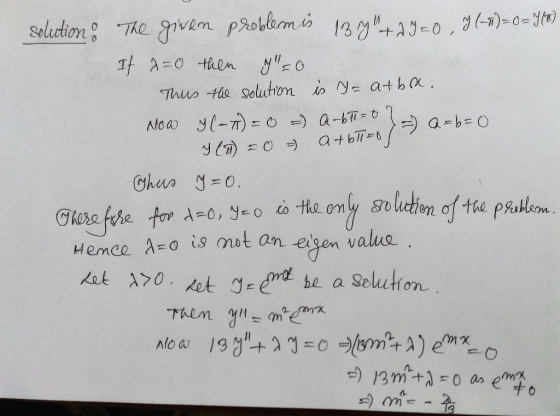 Solution: The given problem is 13y'' + λy = 0, y(-π) = 0 = y(π)
If λ = 0 then y'' = 0
Thus the solution is y = a + bx.
Now y(-π) = 0 ⇒ a - bπ = 0 } ⇒ a = b = 0
y(π) = 0 ⇒ a + bπ = 0
Thus y = 0.
Therefore for λ = 0, y = 0 is the only solution of the problem.
Hence λ = 0 is not an eigen value.
Let λ > 0. Let y = e^{mx} be a solution.
Then y'' = m²e^{mx}
Now 13y'' + λy = 0 ⇒ (13m² + λ) e^{mx} = 0
⇒ 13m² + λ = 0 as e^{mx} ≠ 0
⇒ m² = - λ/13